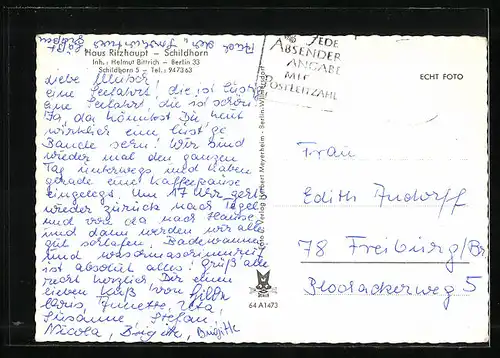 Auch den
grüßen
Haus Ritzhaupt – Schildhorn
Inh.: Helmut Bittrich – Berlin 33
Schildhorn 5 – Tel.: 9473 63
Liebe
eine Seefahrt, die ist lustig
eine Seefahrt, die ist schön!
Ja, da könntest Du mit
wirklich eine lust'ge
Bande sein! Wir sind
wieder mal den ganzen
Tag unterwegs und haben
gerade eine Kaffeepause
eingelegt. Um 17 Uhr geht
wieder zurück nach Tegel
und von da nach Hause,
und dann werden wir alle
gut schlafen. Badewanne
und
ist absolut alles! Grüß alle
recht herzlich, Dir einen
lieben Kuß, von Gilda
Annette, Uta,
Susanne, Stefan,
Nicola, Brigitte, Brigitte
JEDE
ABSENDER
ANGABE
MIT
POSTLEITZAHL
ECHT FOTO
Foto u. Verlag Herbert Meyerheim - Berlin-Wilmersdorf
64 A1473
Frau
Edith Andorff
78 Freiburg/Br